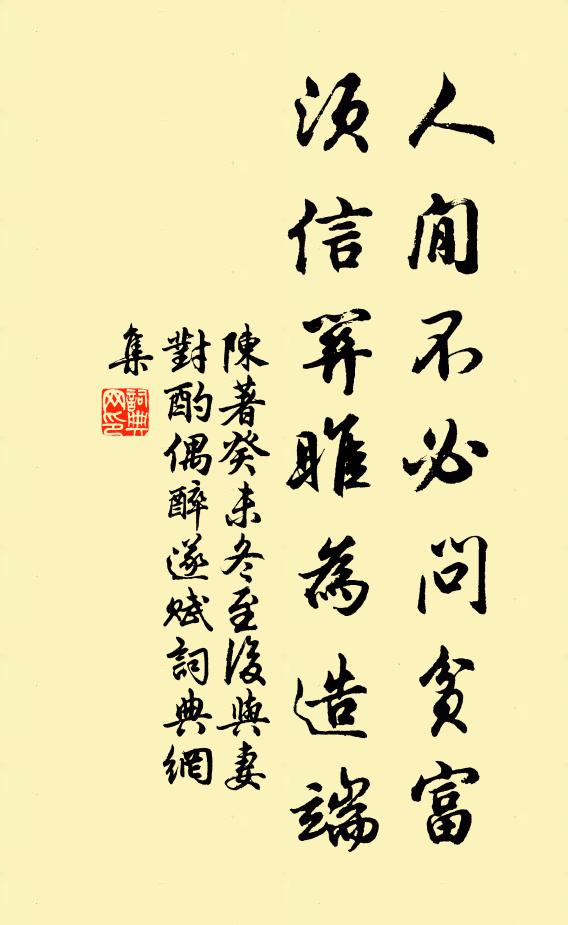 人間不必問貧富
須信關雎為造端
陳著癸未冬至後與妻
對酌偶醉遂賦詞典網
集
詞典
网印